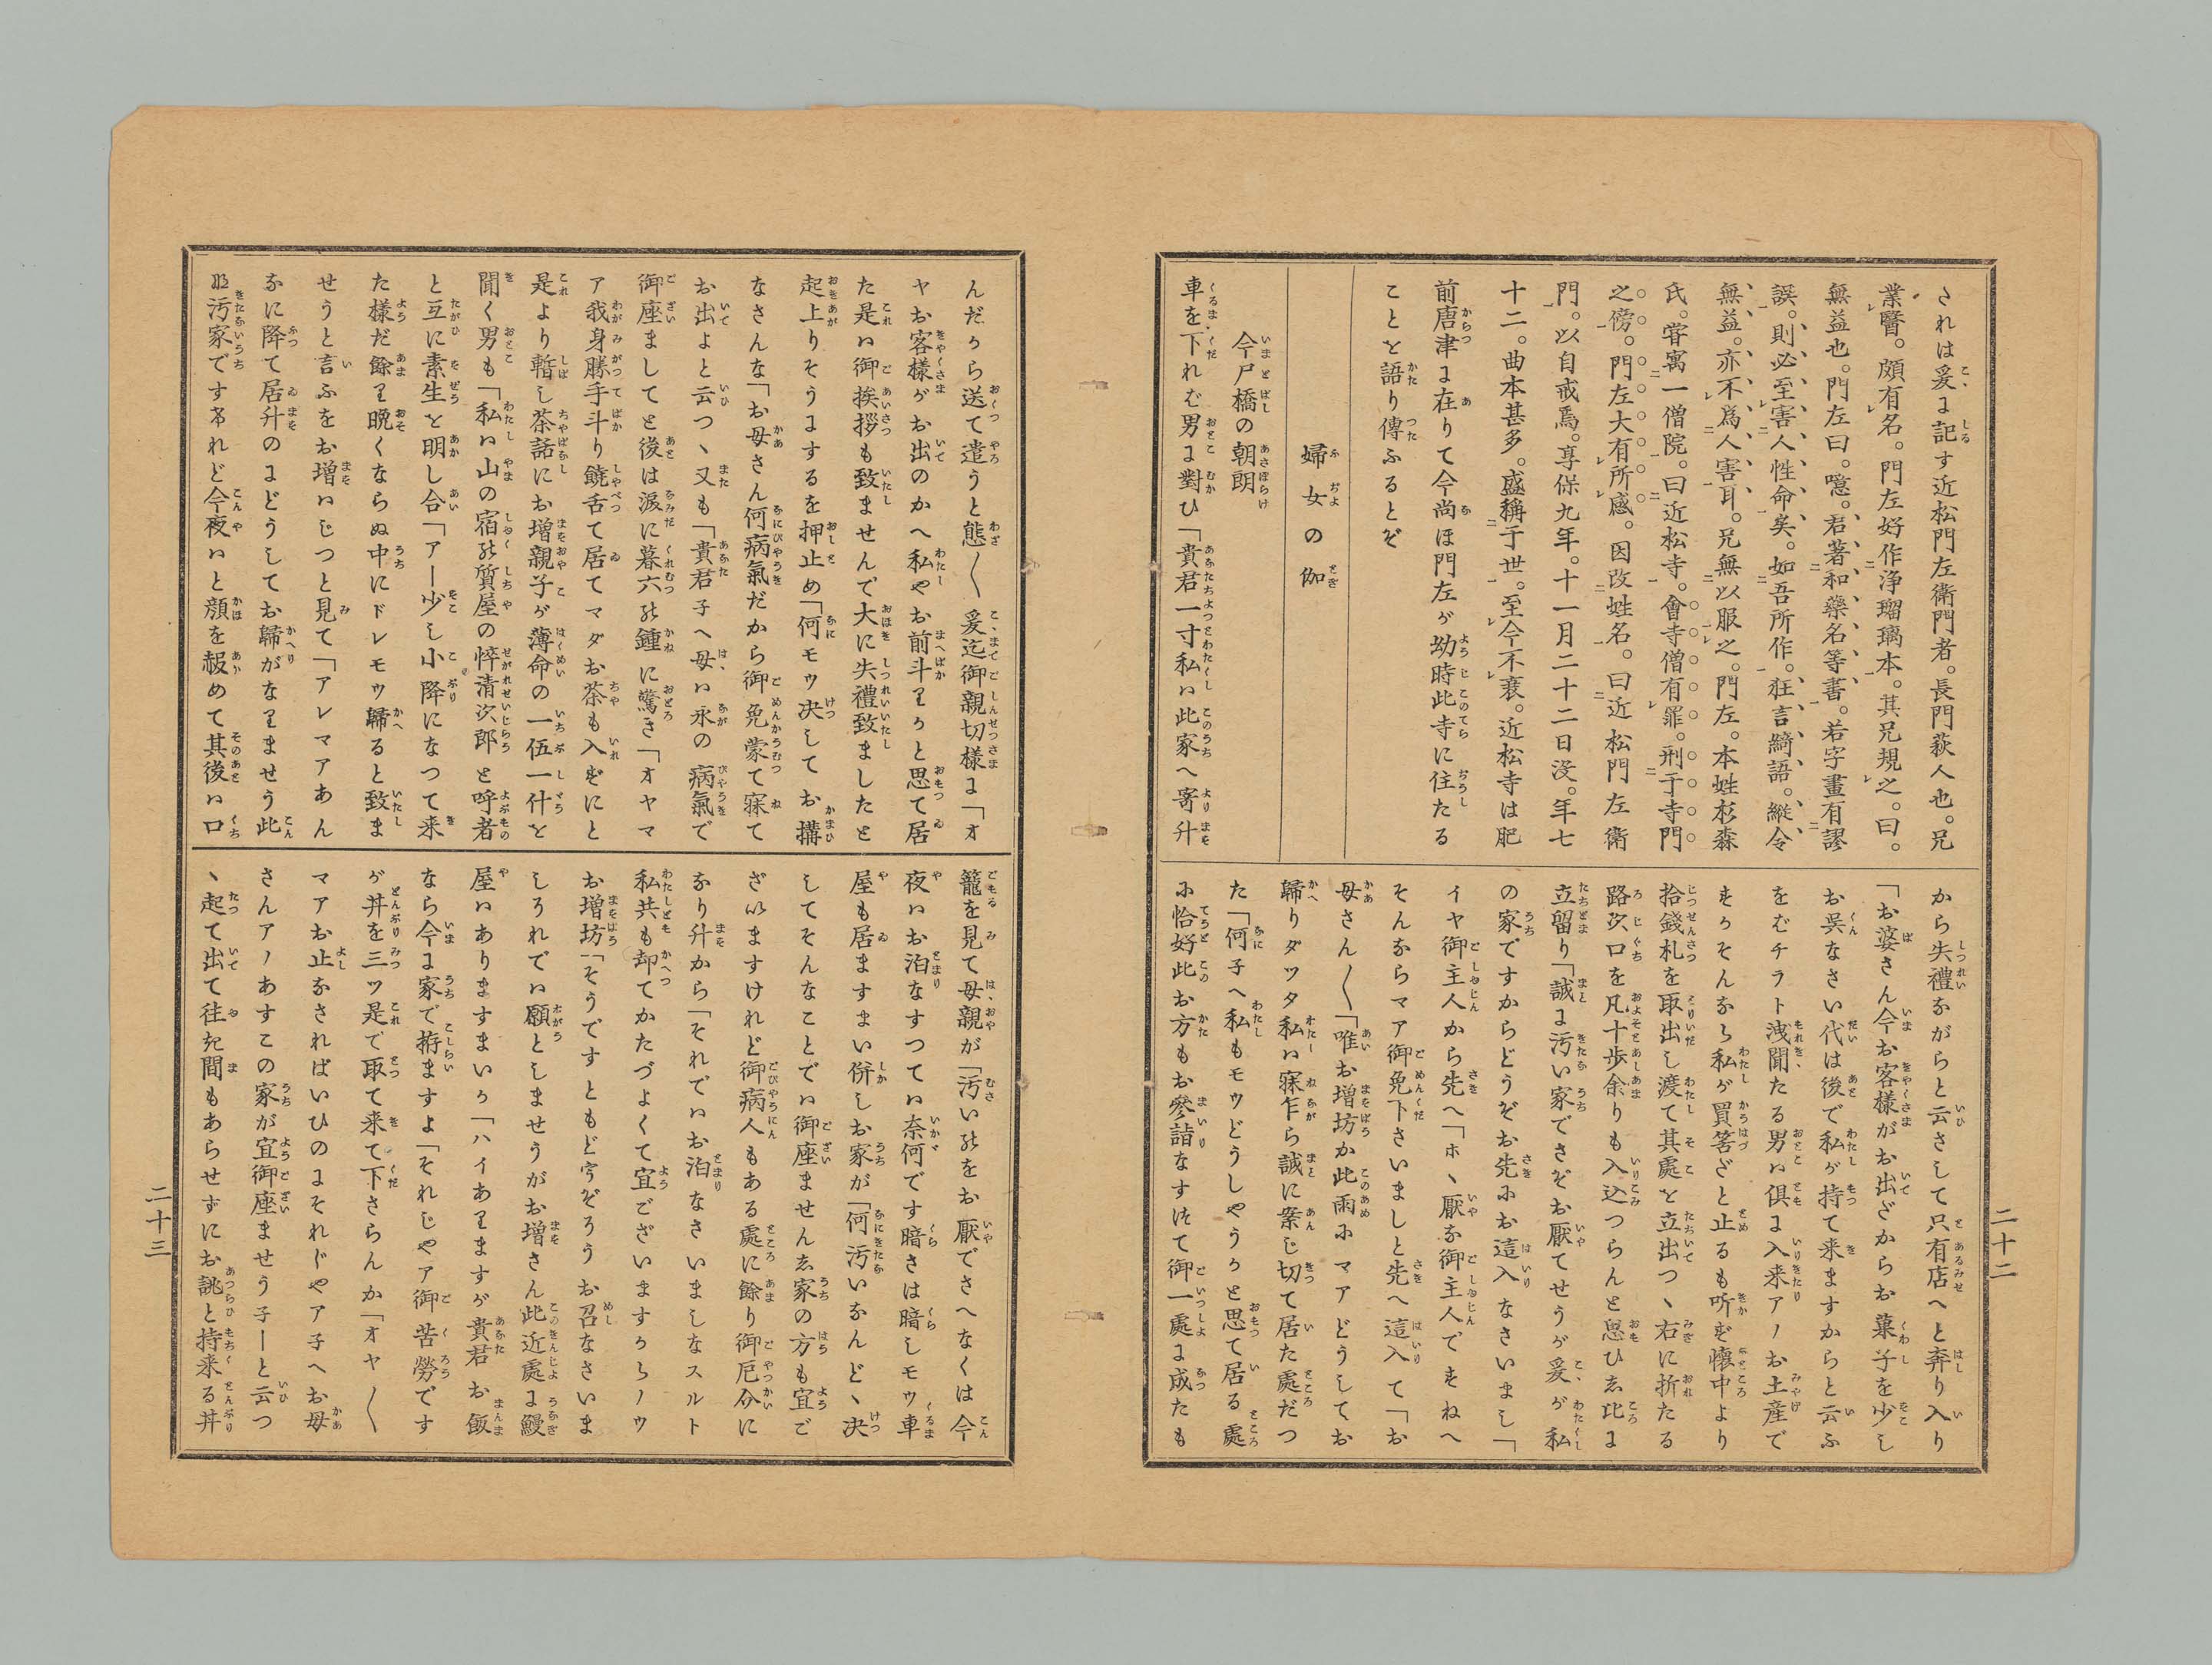 されは爰に記す近松門左衛門者。長門萩人也。兄
業醫。頗有名。門左好作浄瑠璃本。其兄規之。曰。
無益也。門左曰。噫。君著和藥名等書。若字畫有謬
誤。則必至害人性命矣。如吾所作。狂言綺語。縱令
無益。亦不爲人害耳。兄無以服之。門左。本姓杉森
氏。甞寓一僧院。曰近松寺。會寺僧有罪。刑于寺門
之傍。門左大有所感。因改姓名。曰近松門左衛
門。以自戒焉。享保九年。十一月二十二日沒。年七
十二。曲本甚多。盛稱于世。至今不衰。近松寺は肥
前唐津に在りて今尚ほ門左が幼時此寺に住たる
ことを語り傳ふるとぞ
婦女の伽
今戸橋の朝朗
車を下れむ男に對ひ「貴君一寸私ハ此家へ寄升
から失禮ながらと云さして只有店へと奔り入り
「お婆さん今お客様がお出ざからお菓子を少し
お呉なさい代は後で私が持て来ますからと云ふ
をむチラト洩聞たる男ハ倶に入来アノお土産で
すかそんなら私が買筈ざと止るも听かず懷中より
拾錢札を取出し渡て其處を立出つヽ右に折たる
路次口を凡十歩余りも入込つらんと思ひゑ比に
立留り「誠に汚い家でさぞお厭てせうが爰が私
の家ですからどうぞお先にお這入なさいまし「
イヤ御主人から先へ「ホヽ厭な御主人ですねへ
そんならマア御免下さいましと先へ這入て「お
母さん〳〵「唯お増坊か此雨にマアどうしてお
歸りダツタ私ハ寐乍ら誠に案じ切て居た處だつ
た「何子へ私もモウどうしやうかと思て居る處
に恰好此お方もお參詣なすつて御一處に成たも
二十二
んだから送て遣うと態〳〵爰迄御親切様に「オ
ヤお客様がお出のかへ私やお前斗りかと思て居
た是ハ御挨拶も致ませんで大に失禮致ましたと
起上りそうにするを押止め「何モウ决してお搆
なさんな「お母さん何病氣だから御免蒙て寐て
お出よと云つヽ又も「貴君子へ母ハ永の病氣で
御座ましてと後は涙に暮六の鍾に驚き「オヤマ
ア我身勝手斗り饒舌て居てマダお茶も入ずにと
是より暫し茶話にお増親子が薄命の一伍一什を
聞く男も「私ハ山の宿の質屋の悴清次郎と呼者
と互に素生を明し合「アー少し小降になつて来
た様だ餘り晩くならぬ中にドレモウ歸ると致ま
せうと言ふをお増ハじつと見て「アレマアあん
なに降て居升のにどうしてお歸がなりませう此
な汚家ですけれど今夜ハと顔を赧めて其後ハ口
籠を見て母親が「汚いのをお厭でさへなくは今
夜ハお泊なすつてハ奈何です暗さは暗しモウ車
屋も居ますまい併しお家が「何汚いなんどヽ决
してそんなことでハ御座ませんゑ家の方も宜ご
ざいますけれど御病人もある處に餘り御厄介に
なり升から「それでハお泊なさいましなスルト
私共も却てかたづよくて宜ございますからノウ
お増坊「そうですともどうぞろうお召なさいま
しろれでハ願としませうがお増さん此近處に鰻
屋ハありますまいか「ハイありますが貴君お飯
なら今に家で拵ますよ「それじやア御苦勞です
が丼を三ツ是で取て来て下さらんか「オヤ〳〵
マアお止なさればいひのにそれぢやア子へお母
さんアノあすこの家が宜御座ませう子ーと云つ
ヽ起て出て徃た間もあらせずにお誂と持来る丼
二十三